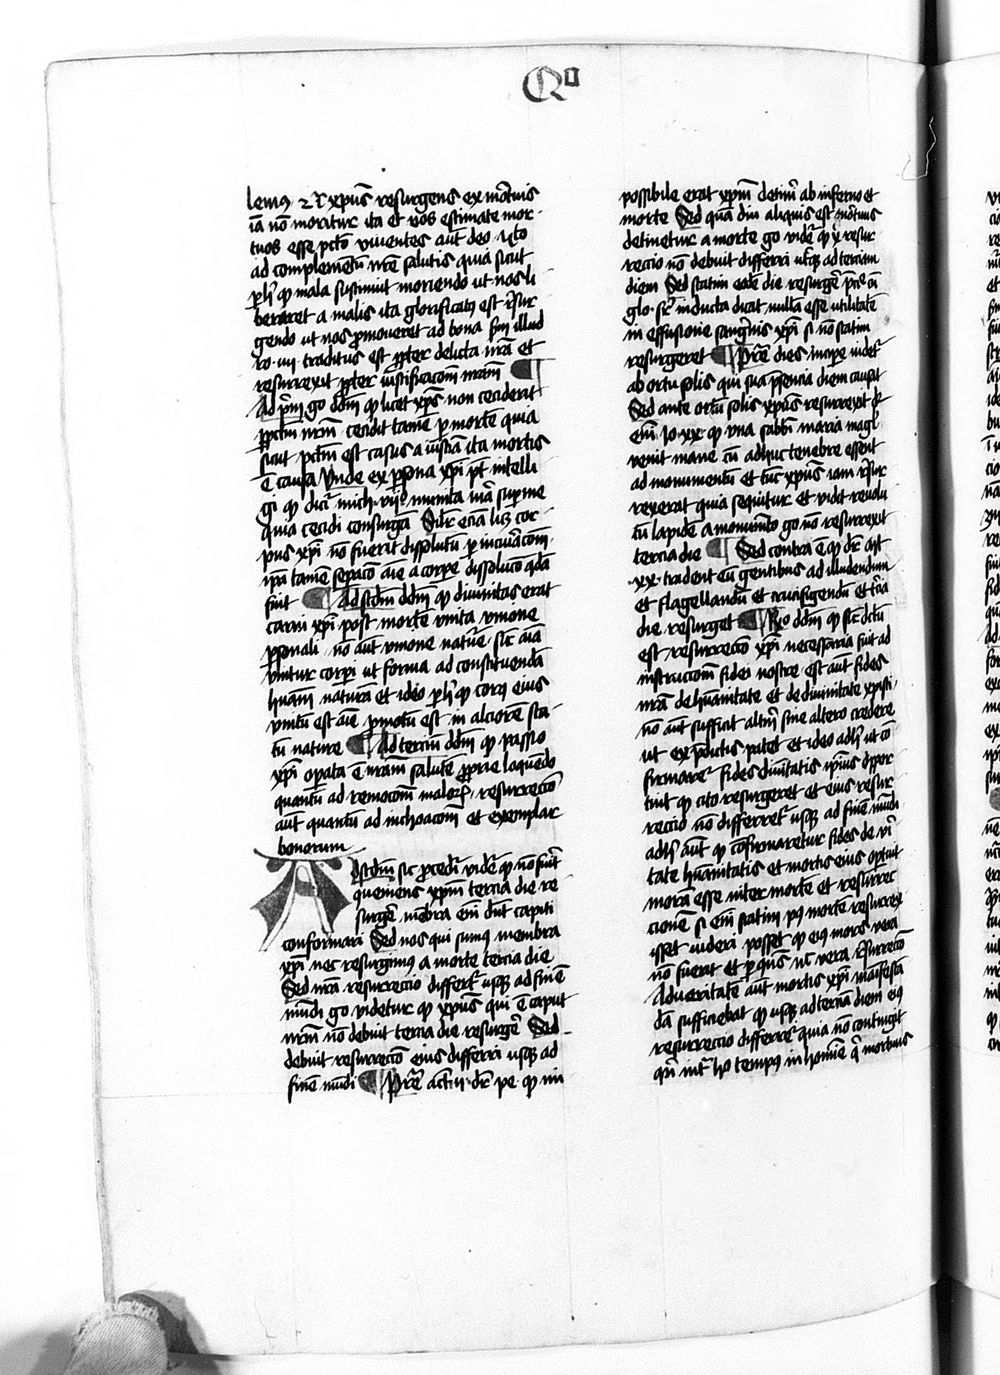 Qo
lemus ⁊ cͬ xpūs resurgens ex mortuis
iā nō moritur ita et vos estimate mor
tuos esse pctō viventes aūt deo ⁊ Qͬto
ad complementū nrē salutis quia sicut
ꝑ hͦ ꝙ mala sustinuit moriendo ut nos li
beraret a malis ita glorificatus est resur
gendo ut nos ꝓmoveret ad bona sm̄ illud
ro. iiii traditus est ꝓpter delicta nrā et
resurrexit ꝓpter iustificacōem nrām ¶
Ad pm̄ go ddm̄ ꝙ licet xpūs non ceciderit
ꝑ pctm̄ cecidit tamē ꝑ mortē quia
sicut pctm̄ est casus a iusticia ita mortis
ē casus Unde ex ꝑsona xpī pt intelli
gi ꝙ dicr̄ mich. vii
quia cecidi consurgā Silr̄ eciā licꝫ cor
pus xpī nō fuerit dissolutū ꝑ incineracōem
ipā tamē sepacō aīe a corpe dissolucō qdā
fuit ¶ Ad scdm̄ ddm̄ ꝙ divinitas erat
carni xpī post mortē unita unione
ꝑsonali nō aūt unione nature sic aīa
unitur corpi ut forma ad constituendā
humānā naturā et ideo ꝑ hͦ ꝙ corpus eius
unitū est aīe ꝓmotū est in alciorē sta
tū nature ¶ Ad terciū ddm̄ ꝙ passio
xpī opata ē nrām salutē ꝓprie loquēdo
quantū ad remocōem maloꝝ resurrectio
aūt quantū ad inchoacōem et exemplar
bonorum
Ad scdm̄ sic ꝓcedr̄ videtr̄ ꝙ nō fuit
queniens xpm̄ tercia die re
surgē membra enī dnt capiti
conformari Sed nos qui sumus membra
xpī nec resurgimus a morte tercia die
Sed nrā resurreccio differtr̄ usqꝫ ad finē
mūdi go videtur ꝙ xpūs qui ē caput
nrm̄ nō debuit tercia die resurgē Sed
debuit resurrectō eius differri usqꝫ ad
finē mūdi ¶ Prē actuū .ii. dr̄ pe. ꝙ im
possibile erat xpm̄ detineri ab inferno et
morte Sed quā diu aliquis est mortuus
detinetur a morte go videtr̄ ꝙ xp̄ resur
reccio nō debuit differri usqꝫ ad terciam
diem Sed statim eodē die resurgē
glo. sr̄ inducta dicat nullā esse utilitatē
in effusione sangūis xpī si nō statim
resurgeret ¶ Prē dies incipe videtr̄
ab ortu solis qui sua pn̄cia diem causat
Sed ante ortū solis xpūs resurrexit dr̄
enī Jo. xx. ꝙ una sabbi maria magl̄
venit mane cū adhuc tenebre essent
ad monumentū et tūc xpūs iam resur
rexerat quia sequitur et vidit revolu
tū lapidē a monumēto go nō resurrexit
tercia die ¶ Sed contra ē ꝙ dr̄ mt
xx. tradent eū gentibus ad illudendum
et flagellandū et crucifigendū et tercia
die resurget ¶ Rō ddm̄ ꝙ sic dictū
est resurrectō xpī necessaria fuit ad
instructōem fidei nostre est aūt fides
nrā de humanitate et de divinitate xpisti
nō aūt sufficit altm̄ sine altero credere
ut ex pdictis patet et ideo ad hͦ ut cō
firmaretr̄ fides divitatis ipsius opor
tuit ꝙ cito resurgeret et eius resur
reccio nō differretr̄ usqꝫ ad finē mūdi
ad hͦ aūt ꝙ confirmaretur fides de vi
tate humānitatis et mortis eius oportuit
morā esse inter mortē et resurrec
cionē si enī statim post mortē resurrex
isset videri posset ꝙ eius mors vera
nō fuerit et ꝑ quēs nc̄ vera resurrectō
Ad veritatē aūt mortis xpī manifestā
dā sufficiebat ꝙ usqꝫ ad terciā diem eius
resurreccio differretr̄ quia nō contingit
qn̄ infr̄ hͦ tempus in homīe qͥ mortuus